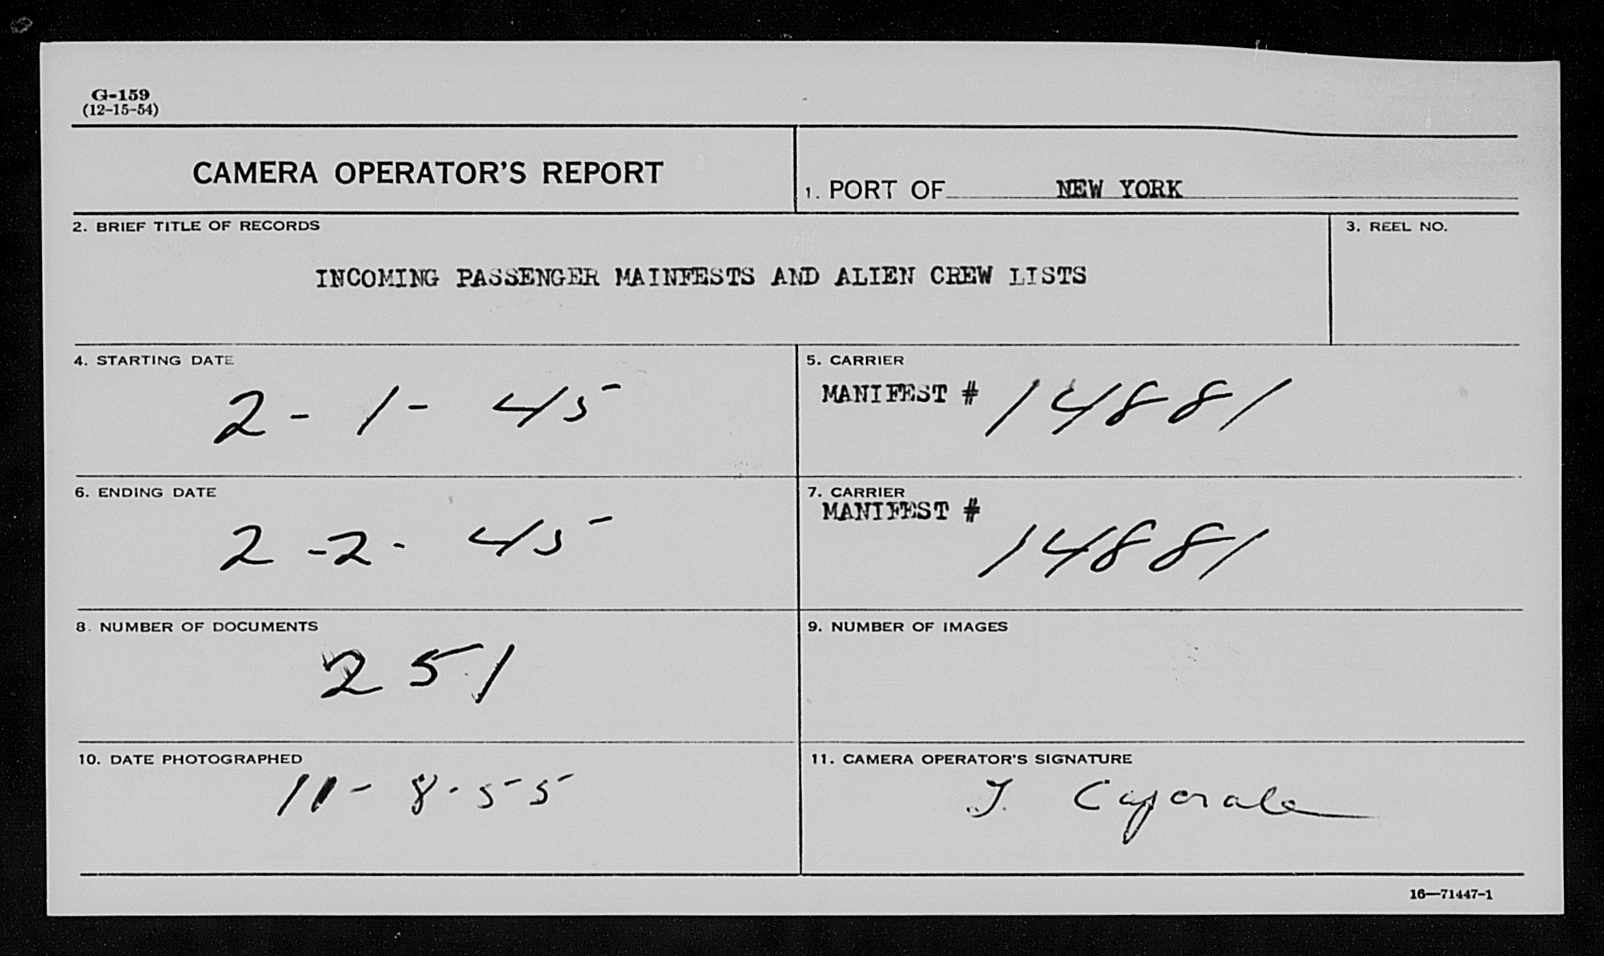 G-159
(12-15-54)
CAMERA OPERATOR'S REPORT
1. PORT OF NEW YORK
2. BRIEF TITLE OF RECORDS
3. REEL NO.
INCOMING PASSENGER MAINFESTS AND ALIEN CREW LISTS
4. STARTING DATE
5. CARRIER
2-1-45
MANIFEST # 14881
6. ENDING DATE
7. CARRIER
2-2-45
MANIFEST # 14881
8. NUMBER OF DOCUMENTS
9. NUMBER OF IMAGES
251
10. DATE PHOTOGRAPHED
11. CAMERA OPERATOR'S SIGNATURE
11-8-55
J. Caporale
16—71447-1